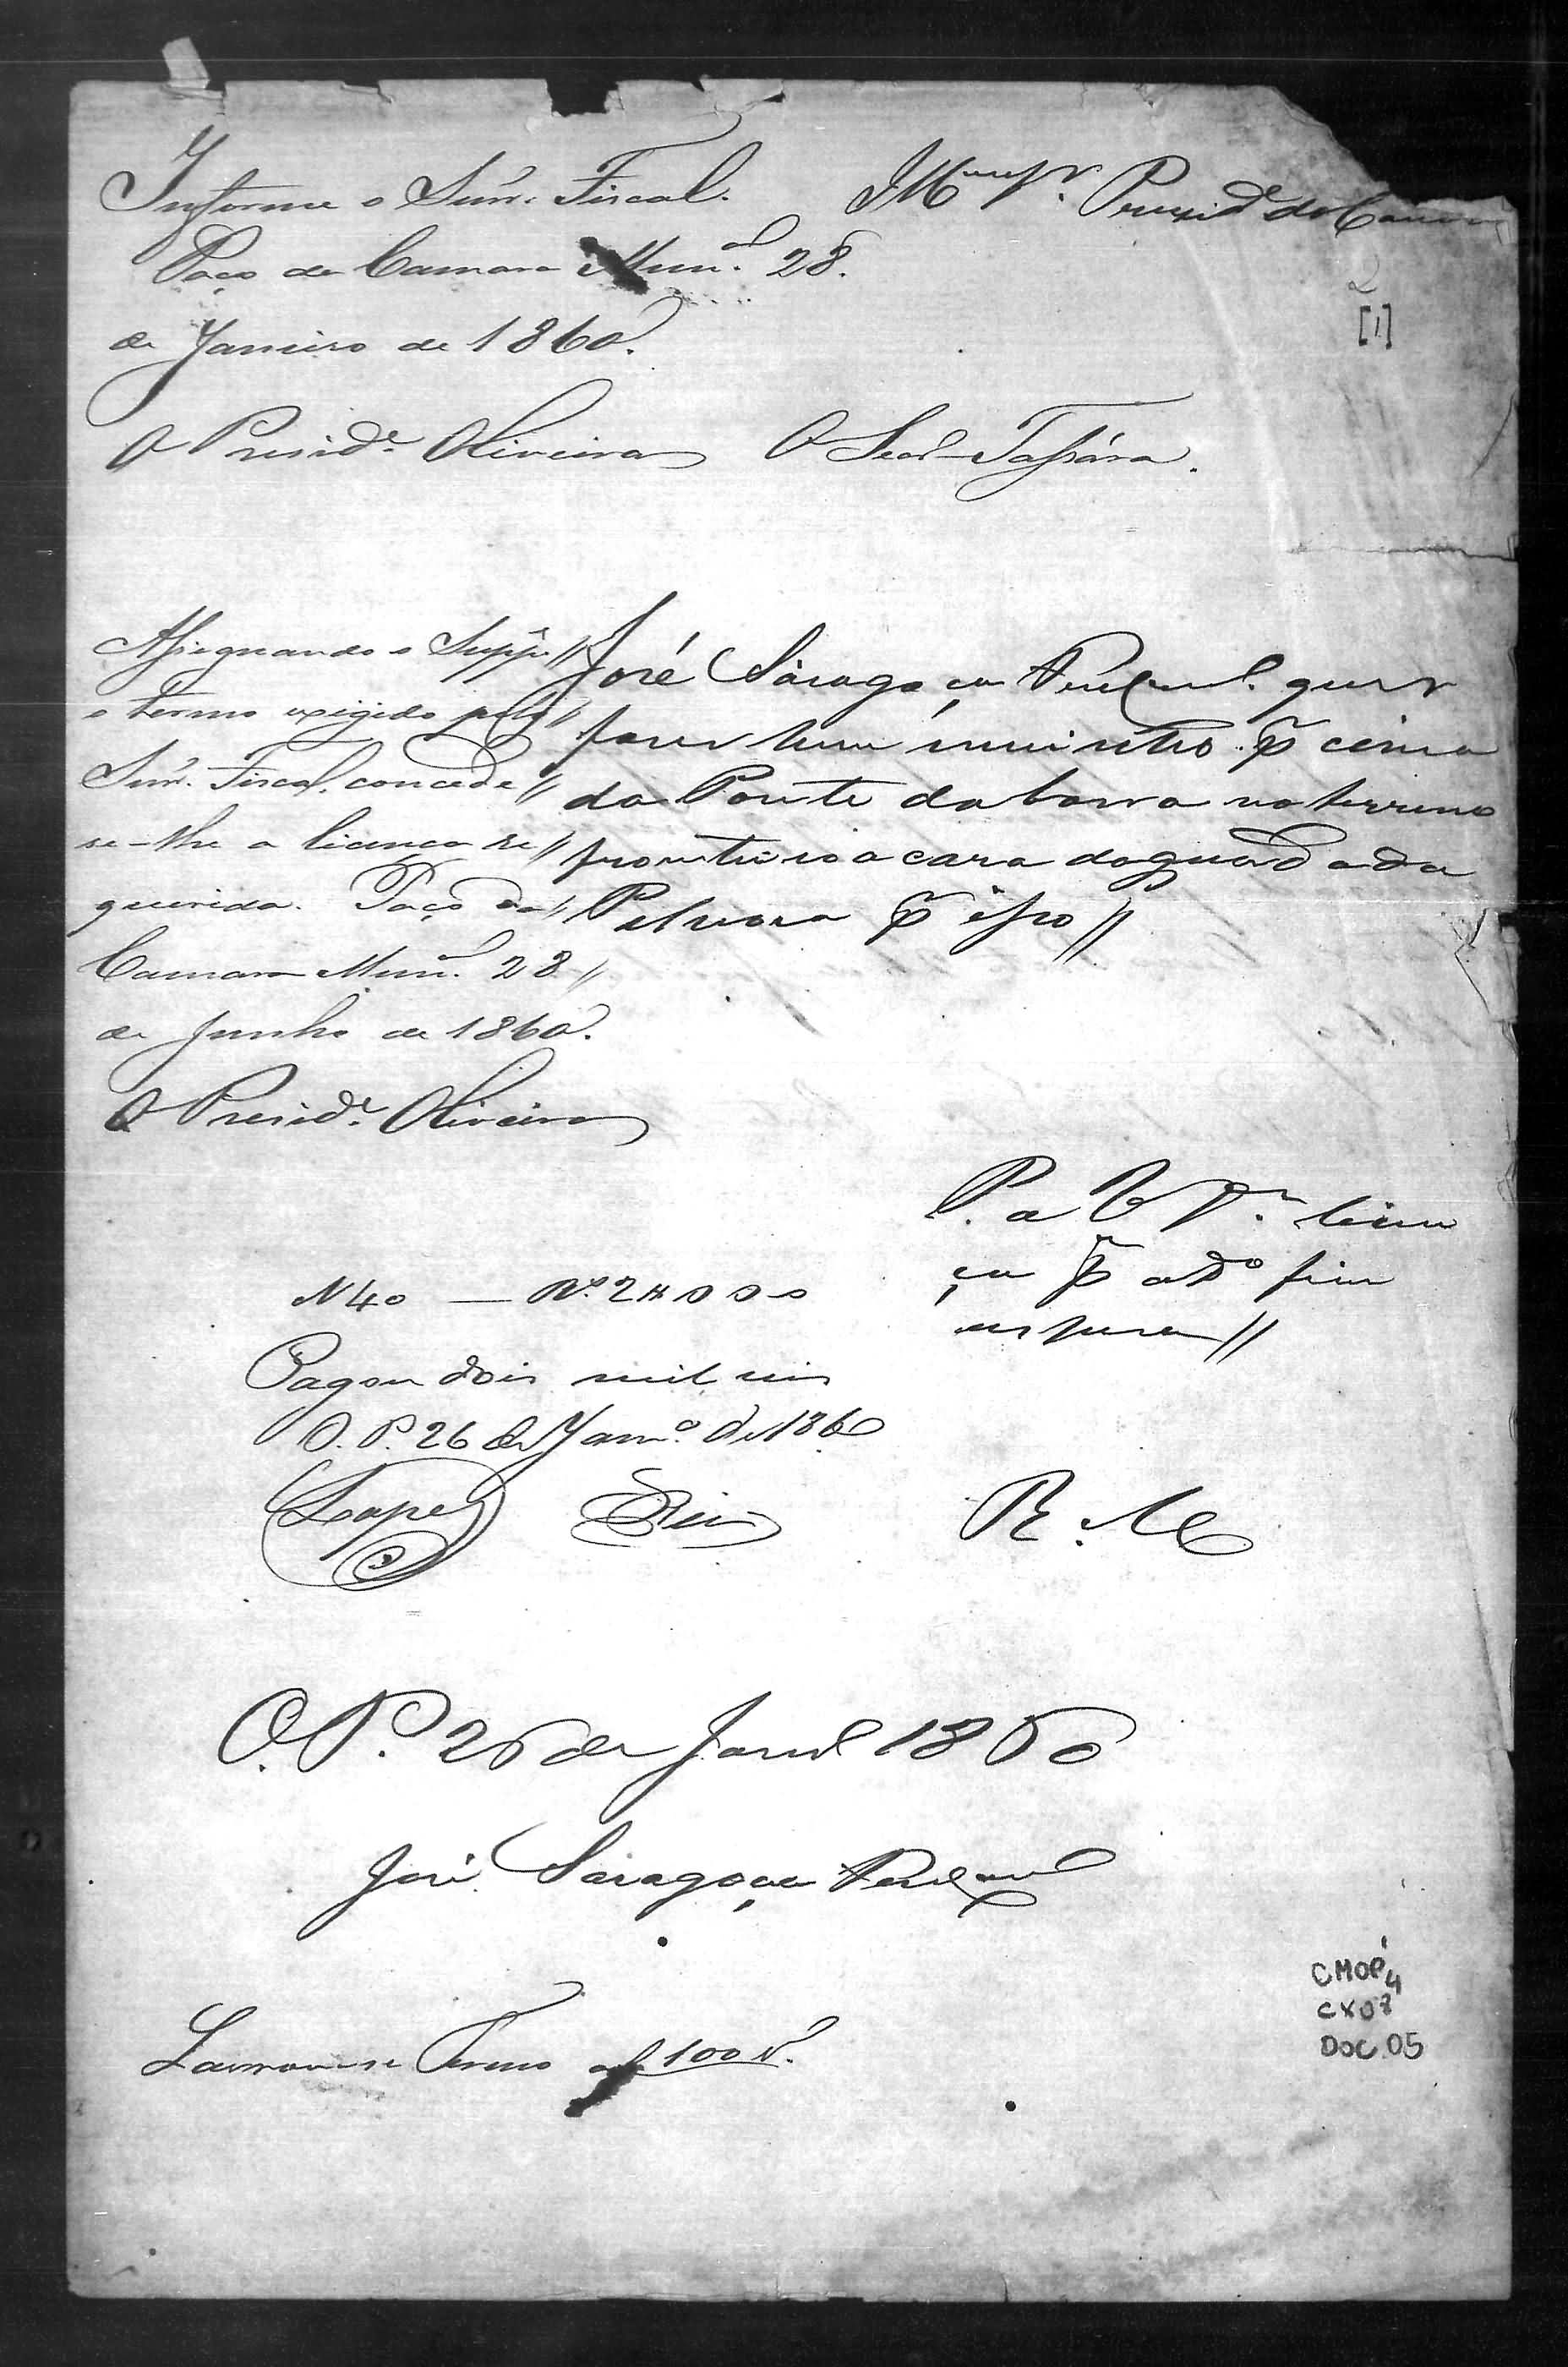 Informe o Snr. Fiscal.
Paço da Camara Mun.al 28.
de Janeiro de 1860.
O Presid.e Oliveira O Secr Tassára.
Illmo Sr. Prezid.e da Camara
2
[1]
Assignando o Supp.e //
o termo exigido pelo //
Snr. Fiscal, concede //
se-lhe a licença re //
querida. Paço da //
Camara Mun.al 28 //
de Junho de 1860.
O Presid.e Oliveira
José Saragoça quer
fazer hum muinho p cima
da Ponte da barra no terreno
fronteiro a caza da guarda da
Polvora p isso //
P. a V S.a licen
ça p a d.o fim
N 40 — Rs. 2#000
Pagou dois mil reis
O. P. 26 de Jan.o de 1860
Lopes Reis
R. Me
O. P. 26 de Janr 1860
José Saragoça
Lavrou-se Termo af 100 V.
CMOP
CX 07
DOC. 05